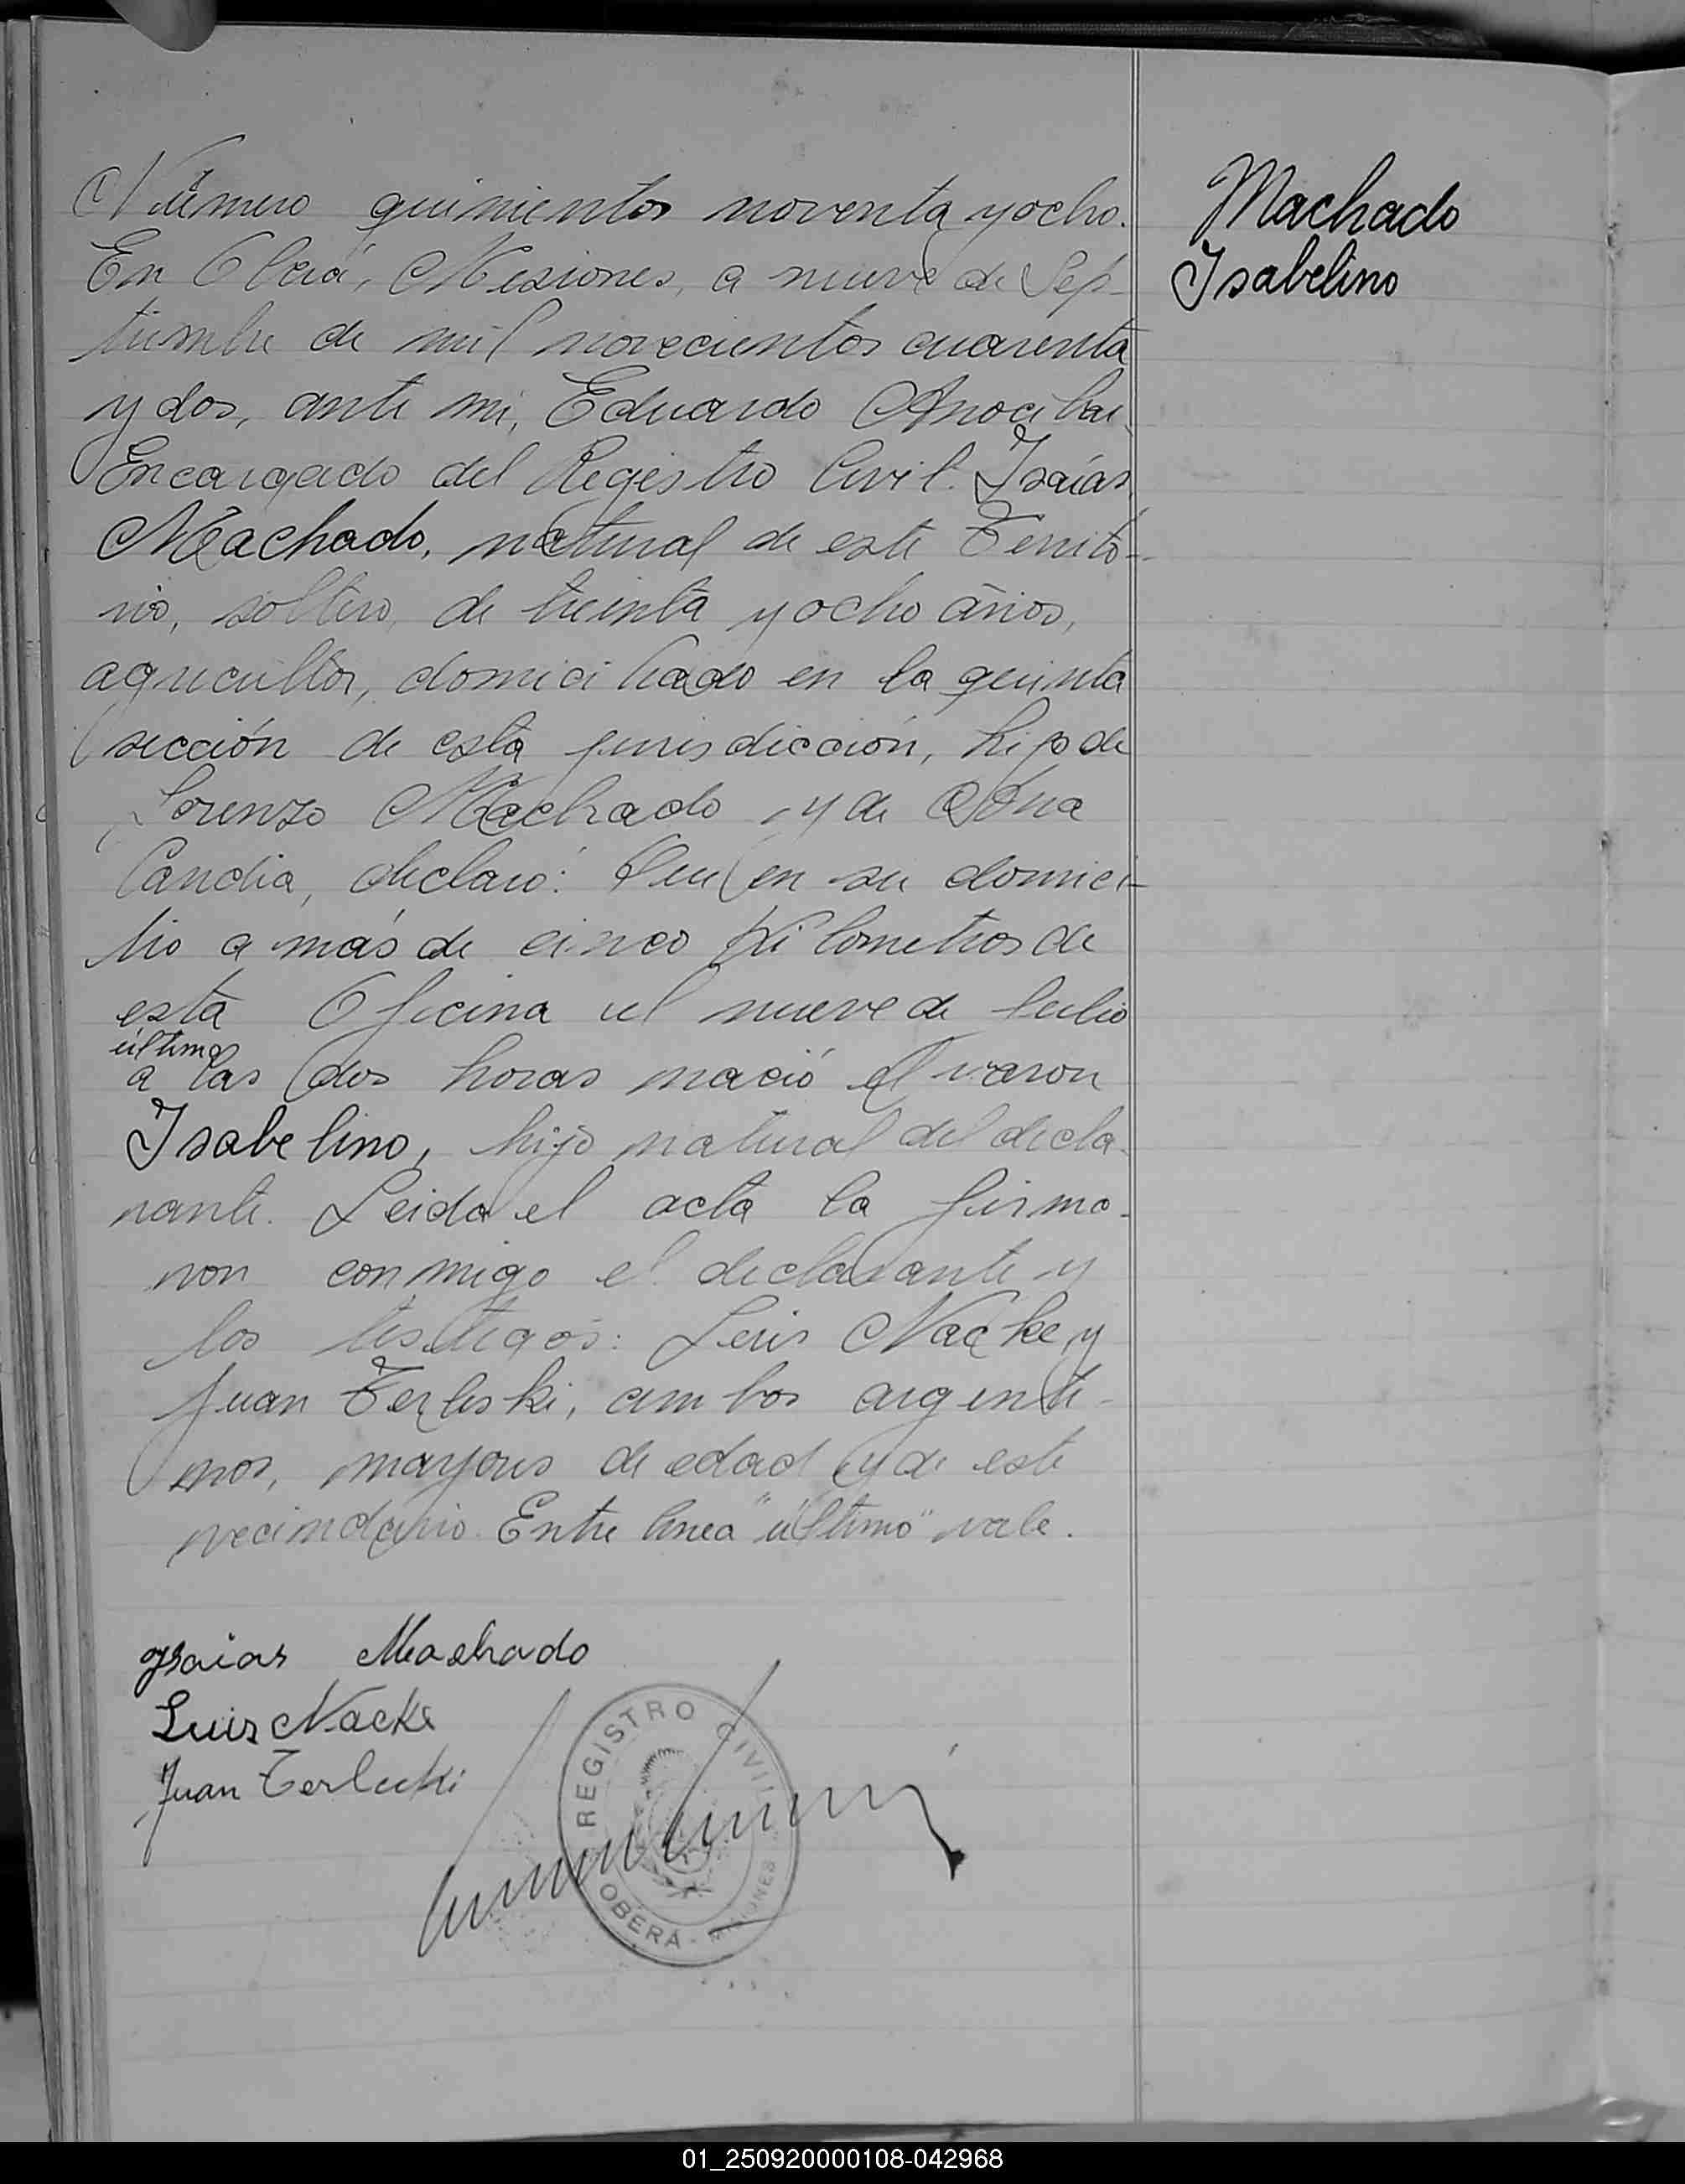 Número quinientos noventa y ocho.
En Oberá, Misiones, a nueve de Sep-
tiembre de mil novecientos cuarenta
y dos, ante mi, Eduardo Anocibar
Encargado del Registro Civil. Isaías
Machado, natural de este Territo-
rio, soltero, de treinta y ocho años,
agricultor, domiciliado en la quinta
sección de esta jurisdicción, hijo de
Lorenzo Machado y de Ana
Candia, declaró: Que en su domici-
lio a más de cinco kilometros de
esta Oficina el nueve de Julio
último
a las dos horas nació el varon
Isabelino, hijo natural del decla-
rante. Leida el acta la firma-
ron conmigo el declarante y
los testigos: Luis Nacke y
Juan Terleski, ambos argenti-
nos, mayores de edad y de este
vecindario. Entre linea "último" vale.
Machado
Isabelino
Isaias Machado
Luis Nacke
Juan Terlecki
REGISTRO CIVIL
OBERÁ - MISIONES
01_250920000108-042968